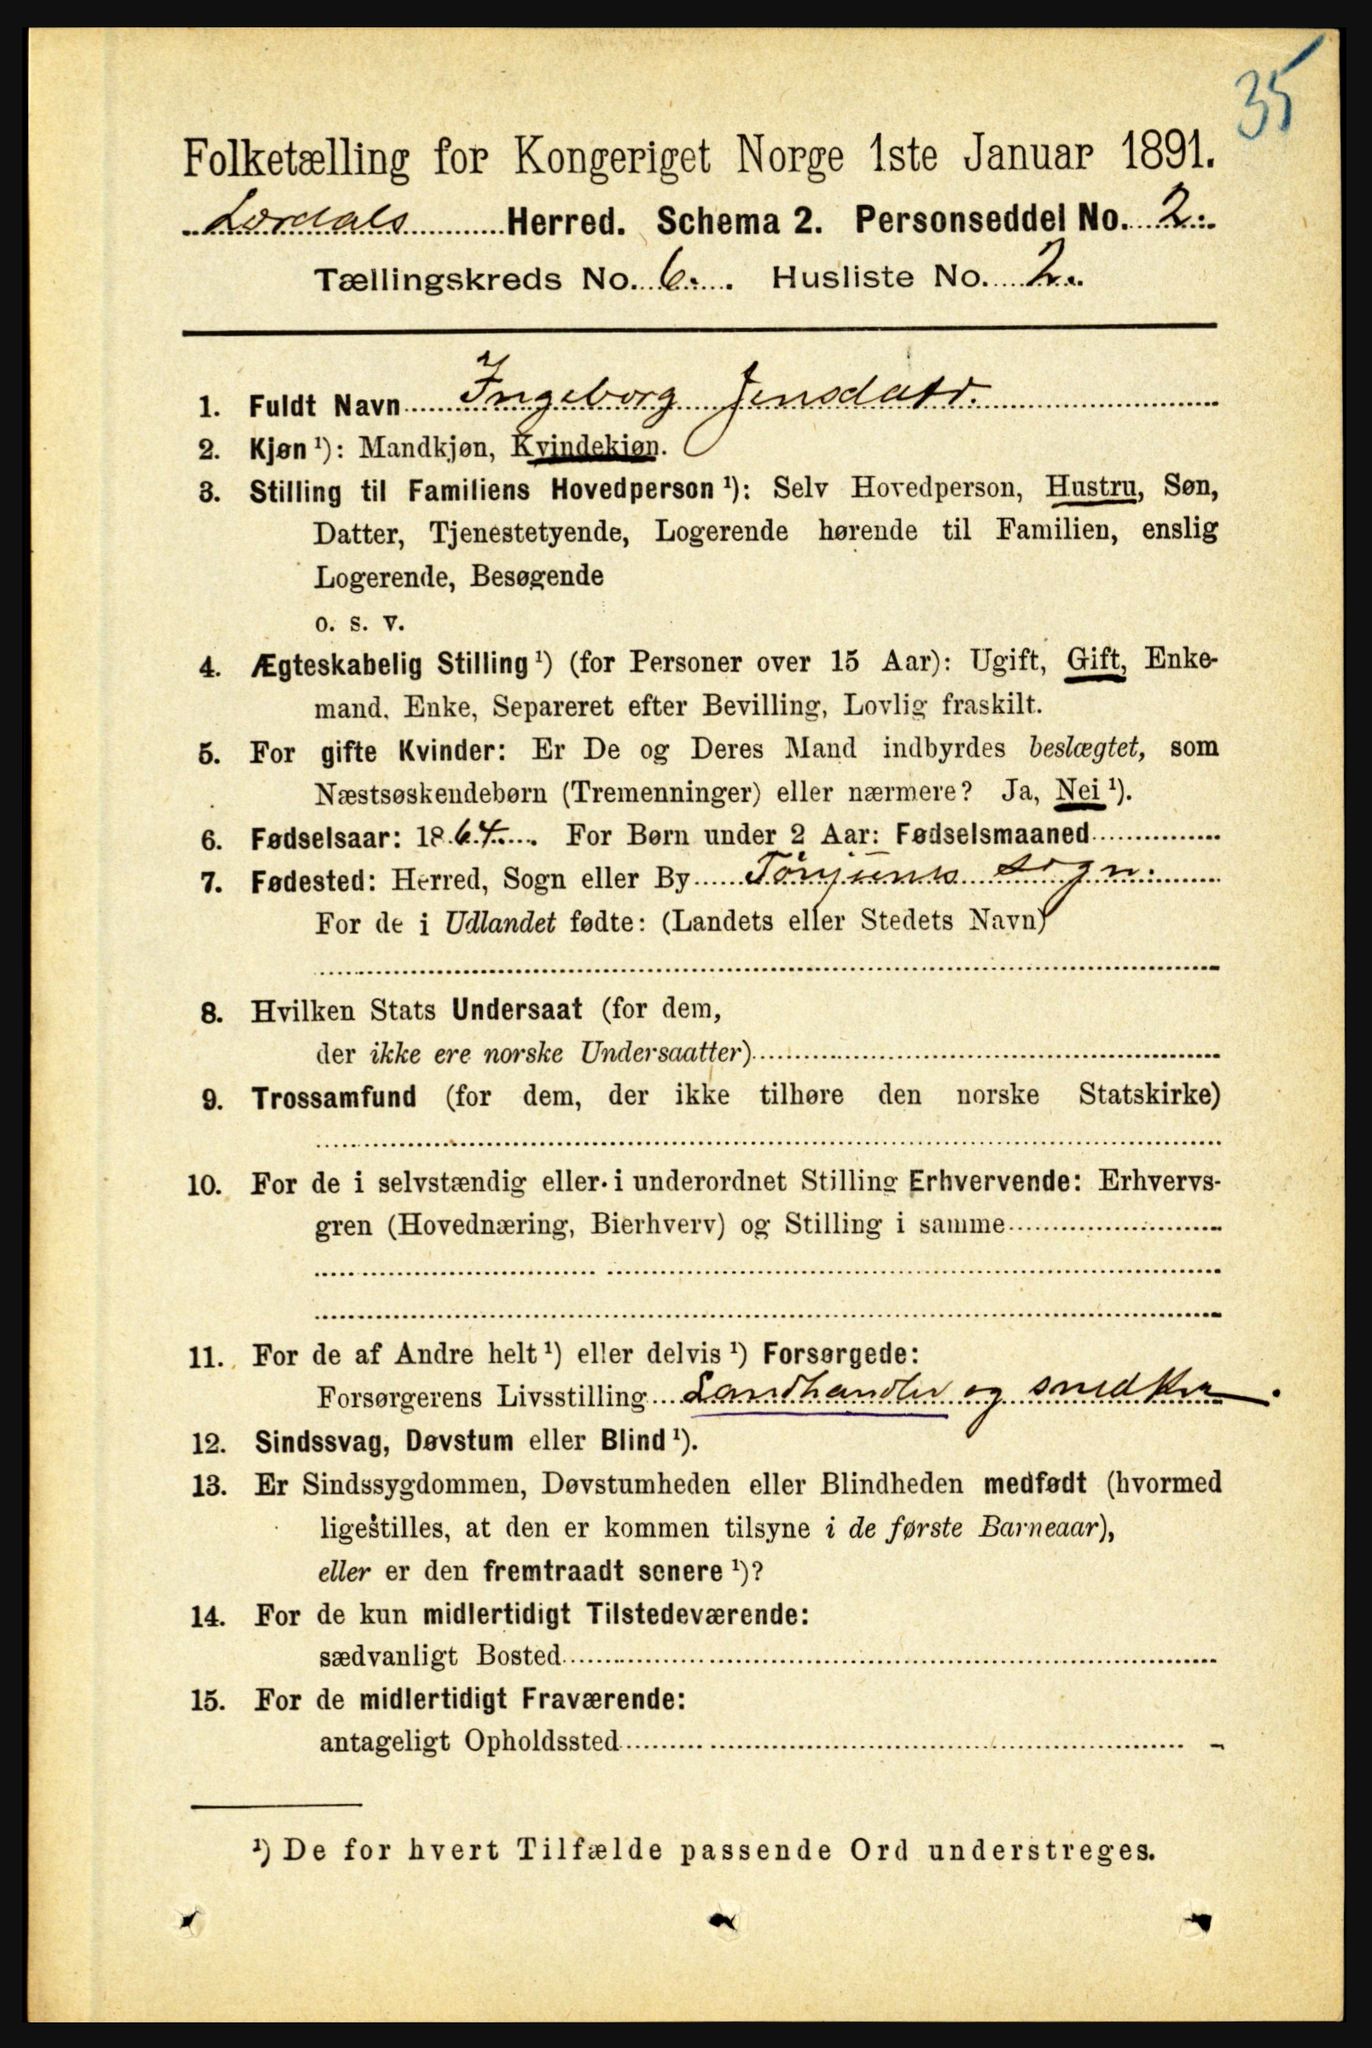 35
Folketælling for Kongeriget Norge 1ste Januar 1891.
Lærdals Herred. Schema 2. Personseddel No. 2.
Tællingskreds No. 6. Husliste No. 2.
1. Fuldt Navn Ingeborg Jensdatr.
2. Kjøn ¹): Mandkjøn, Kvindekjøn.
3. Stilling til Familiens Hovedperson ¹): Selv Hovedperson, Hustru, Søn,
Datter, Tjenestetyende, Logerende hørende til Familien, enslig
Logerende, Besøgende
o. s. v.
4. Ægteskabelig Stilling ¹) (for Personer over 15 Aar): Ugift, Gift, Enke-
mand, Enke, Separeret efter Bevilling, Lovlig fraskilt.
5. For gifte Kvinder: Er De og Deres Mand indbyrdes beslægtet, som
Næstsøskendebørn (Tremenninger) eller nærmere? Ja, Nei ¹).
6. Fødselsaar: 1864. For Børn under 2 Aar: Fødselsmaaned
7. Fødested: Herred, Sogn eller By Tønjums sogn.
For de i Udlandet fødte: (Landets eller Stedets Navn)
8. Hvilken Stats Undersaat (for dem,
der ikke ere norske Undersaatter)
9. Trossamfund (for dem, der ikke tilhøre den norske Statskirke)
10. For de i selvstændig eller i underordnet Stilling Erhvervende: Erhvervs-
gren (Hovednæring, Bierhverv) og Stilling i samme
11. For de af Andre helt ¹) eller delvis ¹) Forsørgede:
Forsørgerens Livsstilling Landhandler og snedker.
12. Sindssvag, Døvstum eller Blind ¹).
13. Er Sindssygdommen, Døvstumheden eller Blindheden medfødt (hvormed
ligestilles, at den er kommen tilsyne i de første Barneaar),
eller er den fremtraadt senere ¹)?
14. For de kun midlertidigt Tilstedeværende:
sædvanligt Bosted
15. For de midlertidigt Fraværende:
antageligt Opholdssted
¹) De for hvert Tilfælde passende Ord understreges.